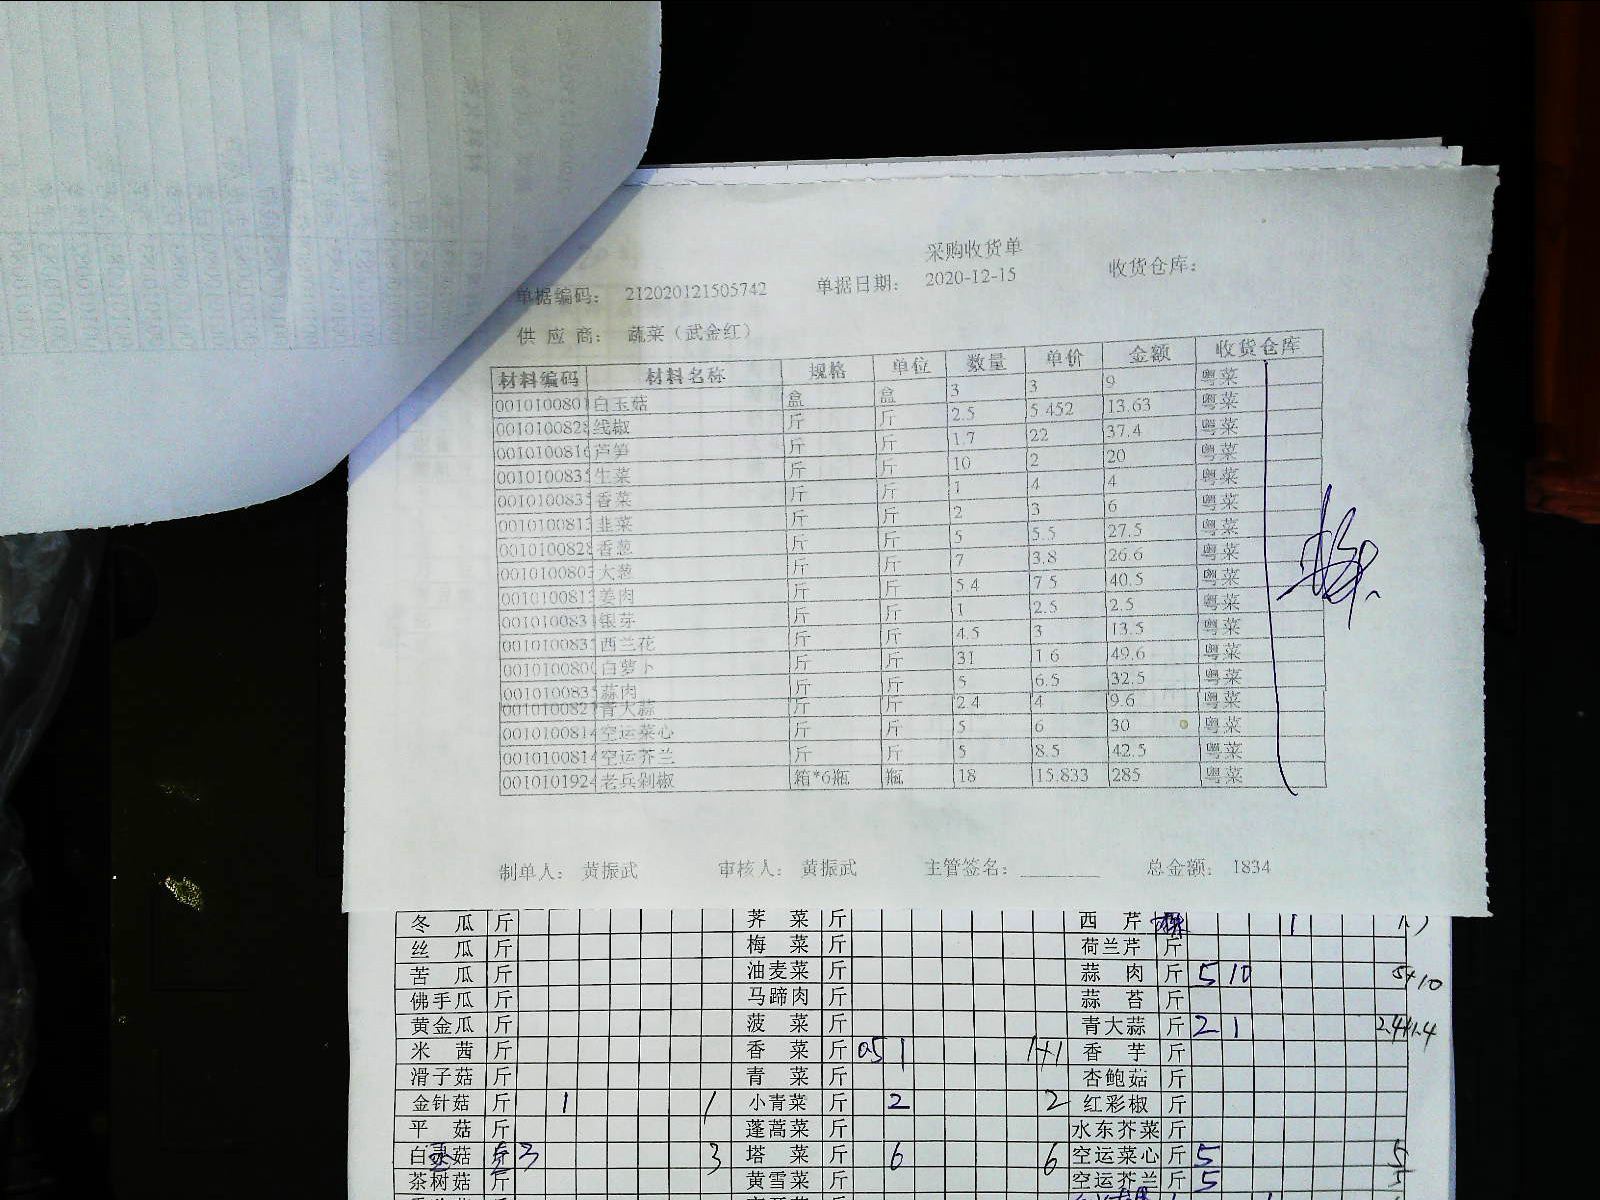 采购收货单
单据编码： 212020121505742 单据日期： 2020-12-15 收货仓库：
供 应 商： 蔬菜（武金红）
材料编码 材料名称 规格 单位 数量 单价 金额 收货仓库
0010100801 白玉菇 盒 盒 3 3 9 粤菜
001010082 线椒 斤 斤 2.5 5.452 13.63 粤菜
001010081 芦笋 斤 斤 1.7 22 37.4 粤菜
001010083 生菜 斤 斤 10 2 20 粤菜
001010083 香菜 斤 斤 1 4 4 粤菜
001010081 韭菜 斤 斤 2 3 6 粤菜
001010082 香葱 斤 斤 5 5.5 27.5 粤菜
001010080 大葱 斤 斤 7 3.8 26.6 粤菜
001010081 姜肉 斤 斤 5.4 7.5 40.5 粤菜
001010083 银芽 斤 斤 1 2.5 2.5 粤菜
001010083 西兰花 斤 斤 4.5 3 13.5 粤菜
001010080 白萝卜 斤 斤 31 1.6 49.6 粤菜
001010083 蒜肉 斤 斤 5 6.5 32.5 粤菜
001010082 青大蒜 斤 斤 2.4 4 9.6 粤菜
001010081 空运菜心 斤 斤 5 6 30 粤菜
001010081 空运芥兰 斤 斤 5 8.5 42.5 粤菜
001010192 老兵剁椒 箱*6瓶 瓶 18 15.833 285 粤菜
制单人： 黄振武 审核人： 黄振武 主管签名：________ 总金额： 1834
冬瓜 斤 荠菜 斤 西芹 1
丝瓜 斤 梅菜 斤 荷兰芹 斤
苦瓜 斤 油麦菜 斤 蒜肉 斤 5 10 5+10
佛手瓜 斤 马蹄肉 斤 蒜苔 斤
黄金瓜 斤 菠菜 斤 青大蒜 斤 2 1 2.4+1.4
米茜 斤 香菜 斤 0.5 1 1+1 香芋 斤
滑子菇 斤 青菜 斤 杏鲍菇 斤
金针菇 斤 1 1 小青菜 斤 2 2 红彩椒 斤
平菇 斤 蓬蒿菜 斤 水东芥菜 斤
白 菇 3 3 塔菜 斤 6 6 空运菜心 斤 5 5
茶树菇 斤 黄雪菜 斤 空运芥兰 斤 5 5